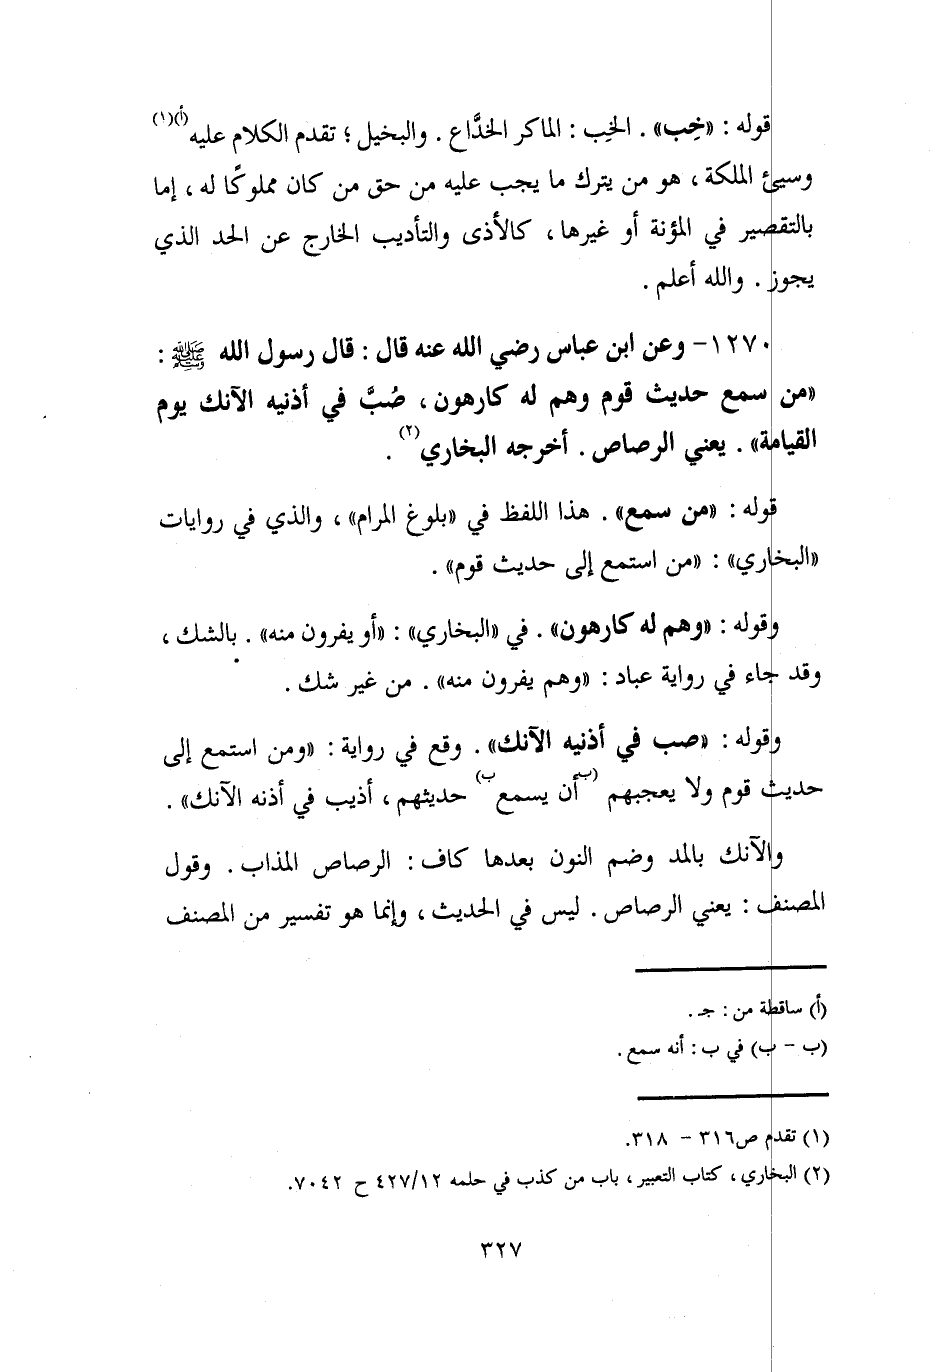 قوله : «خِب» . الخِب : الماكر الخدَّاع . والبخيل ؛ تقدم الكلام عليه(أ)(١)
وسيئ الملكة ، هو من يترك ما يجب عليه من حق من كان مملوكًا له ، إما
بالتقصير في المؤنة أو غيرها ، كالأذى والتأديب الخارج عن الحد الذي
يجوز . والله أعلم .
١٢٧٠- وعن ابن عباس رضي الله عنه قال : قال رسول الله ﷺ :
«من سمع حديث قوم وهم له كارهون ، صُبَّ في أذنيه الآنك يوم
القيامة» . يعني الرصاص . أخرجه البخاري(٢) .
قوله : «من سمع» . هذا اللفظ في «بلوغ المرام» ، والذي في روايات
«البخاري» : «من استمع إلى حديث قوم» .
وقوله : «وهم له كارهون» . في «البخاري» : «أو يفرون منه» . بالشك ،
وقد جاء في رواية عباد : «وهم يفرون منه» . من غير شك .
وقوله : «صب في أذنيه الآنك» . وقع في رواية : «ومن استمع إلى
حديث قوم ولا يعجبهم (ب أن يسمع ب) حديثهم ، أذيب في أذنه الآنك» .
والآنك بالمد وضم النون بعدها كاف : الرصاص المذاب . وقول
المصنف : يعني الرصاص . ليس في الحديث ، وإنما هو تفسير من المصنف
(أ) ساقطة من : جـ .
(ب - ب) في ب : أنه سمع .
(١) تقدم ص٣١٦ - ٣١٨.
(٢) البخاري ، كتاب التعبير ، باب من كذب في حلمه ٤٢٧/١٢ ح ٧٠٤٢.
٣٢٧